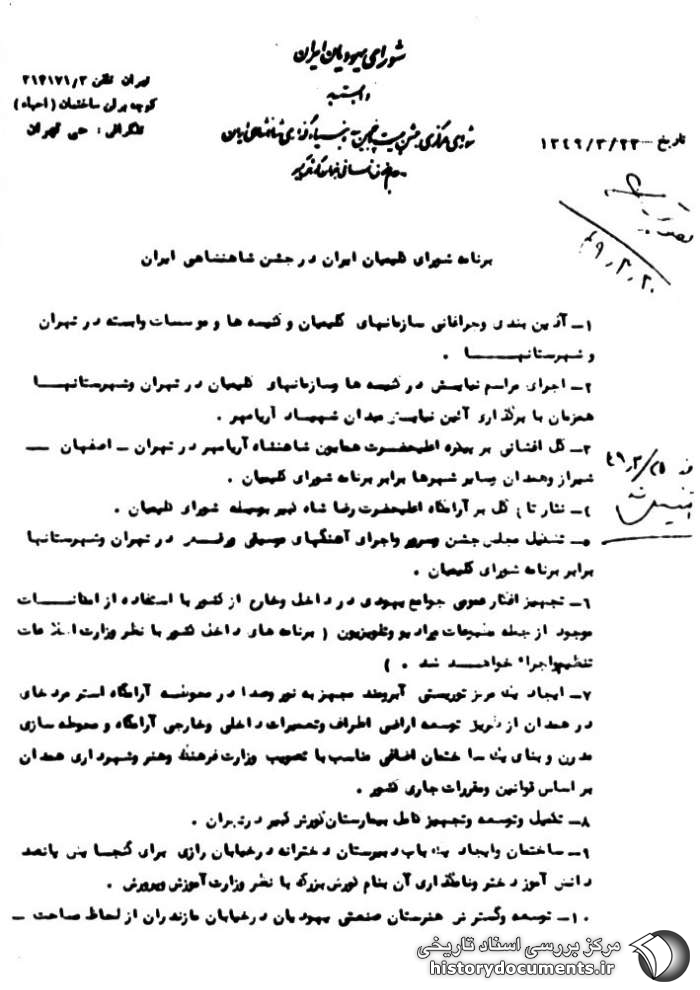 شورای یهودیان ایران
وابسته
به شورای مرکزی جشن بیست و پنجمین سده بنیادگذاری شاهنشاهی ایران
تهران تلفن ۳/
کوچه برلن ساختمان (احیاء)
تلگرافی: حی تهران
تاریخ ۱۳۴۹/۳/۲۳
۴۹،۳،۲۰
برنامه شورای کلیمیان ایران در جشن شاهنشاهی ایران
۱ــ آذین بندی وچراغانی سازمانهای کلیمیان و کنیسه ها و موسسات وابسته در تهران
و شهرستانهــا .
۲ــ اجرای مراسم نیایش در کنیسه ها وسازمانهای کلیمیان در تهران وشهرستانهــا
همزمان با برگذاری آئین نیایش میدان شهیاد آریامهر .
۳ــ گل افشانی بر پیکره اعلیحضرت همایون شاهنشاه آریامهر در تهران ــ اصفهان ــ
شیراز وهمدان وسایر شهرها برابر برنامه شورای کلیمیان .
۴ــ نثار تاج گل بر آرامگاه اعلیحضرت رضا شاه کبیر بوسیله شورای کلیمیان .
۵ــ تشکیل مجلس جشن وسرور واجرای آهنگهای موسیقی ورقص در تهران وشهرستانها
برابر برنامه شورای کلیمیان .
۶ــ تجهیز افکار عمومی جوامع یهودی در داخل وخارج از کشور با استفاده از امکانــات
موجود از جمله مطبوعات ورادیو وتلویزیون ( برنامه های داخل کشور با نظر وزارت اطلاعات
تنظیم واجراء خواهــد شد . )
۷ــ ایجاد یک مرکز توریستی آبرومند مجهز به نور وصدا در محوطه آرامگاه استر مردخای
در همدان از طریق توسعه اراضی اطراف وتعمیرات داخلی وخارجی آرامگاه و محوطه سازی
مدرن و بنای یک ساختمان اضافی مناسب با تصویب وزارت فرهنگ وهنر وشهرداری همدان
بر اساس قوانین ومقررات جاری کشور .
۸ــ تکمیل وتوسعه وتجهیز کامل بیمارستان کورش کبیر درتهران .
۹ــ ساختمان وایجاد یک باب دبیرستان دخترانه درخیابان رازی برای گنجایش پانصد
دانش آموز دختر ونامگذاری آن بنام کورش بزرگ با نظر وزارت آموزش وپرورش .
۱۰ــ توسعه وگسترش هنرستان صنعتی یهودیان درخیابان مازندران از لحاظ مساحت ــ
مرکز بررسی اسناد تاریخی
historydocuments.ir